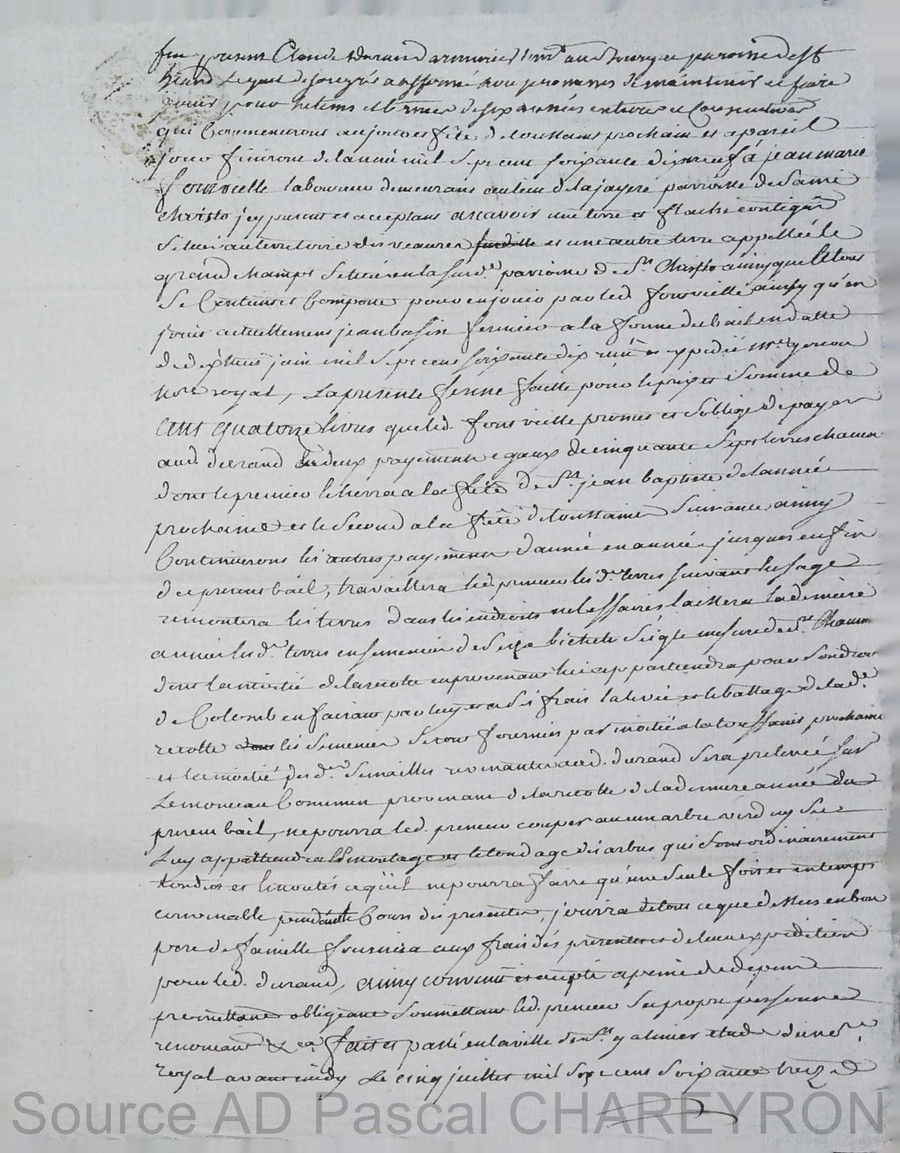 fut présent Claude durand armurier dem.t au bourg et paroisse de st
héand lequel de son gré a affermé avec promesses de maintenir et faire
jouir pour le tems et terme de six années entieres et Consecutives
qui Commenceront au jour et fête de toussaint prochain et a pareil
jour finiront de lannée mil sept cent soixante dix neuf à jean marie
fournelle laboureur demeurant au lieu de la jayere parroisse de Saint
christo jcy present et acceptant ascavoir une terre et flache contigue
Situés au territoire des veaures et une autre terre appellée le
grand champs Située en la susd.e parroisse de St Christo ainsy que le tous
Se Contient et Compose pour en jouir par led. fournelle ainsy qu'en
jouit actuellement jean bastin fermier a la forme du bail en datte
du dixhuit juin mil sept cent soixante dix recû et expedié
no.re royal, La presente ferme faitte pour le prix et Somme de
cent quatorze livres que led. fournelle promet et s'oblige de payer
aud. durand en deux payements egaux de cinquante sept livres chacun
dont le premier écherra a la fête de St jean baptiste de lannée
prochaine et le Second a la fête de toussaint Suivante, ainsy
Continueront les autres payements d'année en année jusques en fin
du present bail, travaillera led. preneur les d.tes terres suivant lusage
remontera les terres dans les endroits necessaires laissera la derniere
année les d.tes terres ensemencées de seize bichets seigle mesure de St Chaumon
dont la moitié de la recolte en provenant lui appartiendra pour Son droit
de Colomb en faisant par luy et a ses frais la levée et le battage de la d.e
recolte les Semences Seront fournies par moitié a la toussaints prochaine
et la moitié des d.tes Semailles revenante aud. durand Sera prelevée sur
Le monceau Commun provenant de la recolte de la derniere année du
present bail, ne pourra led. preneur couper aucun arbre verd ny sec
Luy appartiendra Lemontage et le tondage des arbres qui Sont ordinairement
tondus et Emontés ce qu'il ne pourra faire qu'une Seule fois et en temps
convenable pendant le Cours des presentes, jouira de tout ce que dessus en bon
pere de famille fournira aux frais des presentes et de leur expedition
pour led. durand, ainsy convenu et accepté a peine de depens
promettant obligeant Soumettant led. preneur Sa propre personne
renonceant &ca. fait et passé en la ville de St galmier etude du no.re
royal avant midy Le cinq juillet mil sept cent soixante treize
Source AD Pascal CHAREYRON